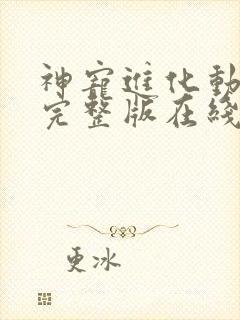 神寵進化動
完整版在綫
更冰